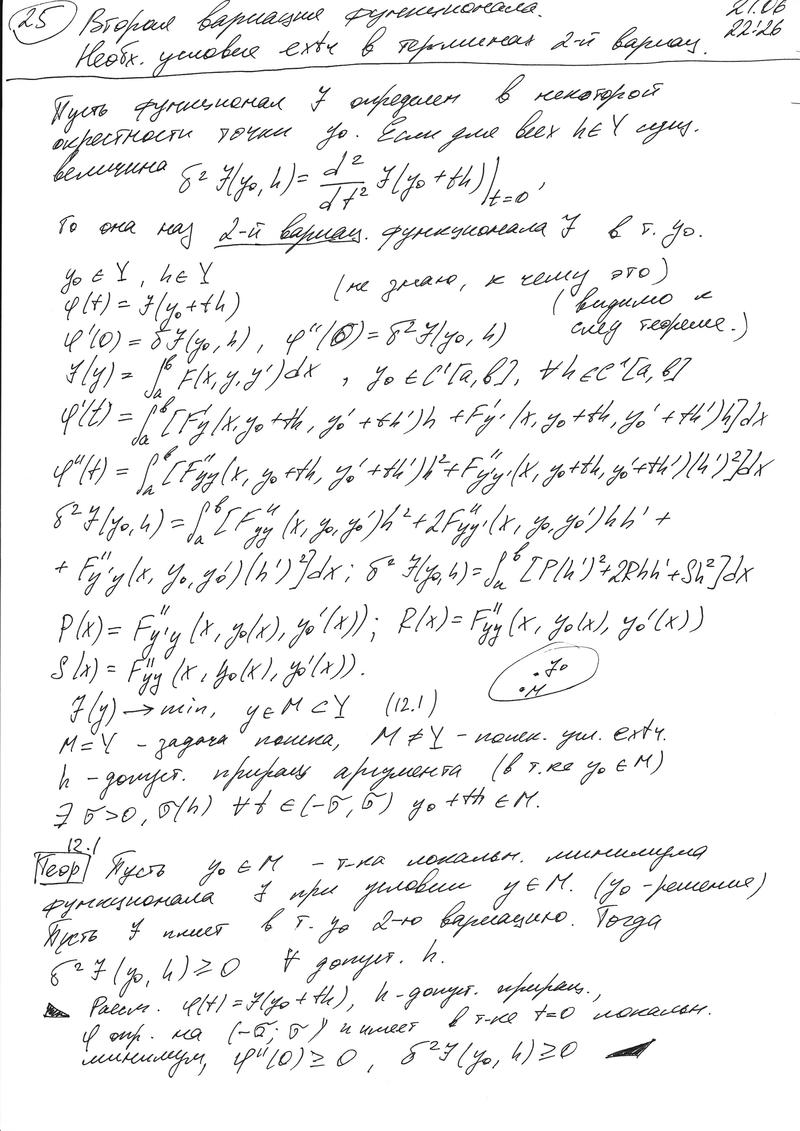 25 Вторая вариация функционала. 21.06
Необх. условие extr в терминах 2-й вариац. 22:26
Пусть функционал J определен в некоторой
окрестности точки y₀. Если для всех h∈Y сущ.
величина δ²J(y₀,h) = d²/dt² J(y₀+th)|t=0,
То она наз 2-й вариац. функционала J в т. y₀.
y₀∈Y, h∈Y (не знаю, к чему это)
φ(t) = J(y₀+th) (видимо к
φ'(0) = δJ(y₀,h), φ''(0) = δ²J(y₀,h) след теореме.)
J(y) = ∫ₐᵇ F(x,y,y')dx, y₀∈C'[a,b], ∀h∈C'[a,b]
φ'(t) = ∫ₐᵇ [F'y(x,y₀+th, y₀'+th')h + F'y'(x,y₀+th, y₀'+th')h]dx
φ''(t) = ∫ₐᵇ [F''yy(x, y₀+th, y₀'+th')h² + F''y'y'(x, y₀+th, y₀'+th')(h')²]dx
δ²J(y₀,h) = ∫ₐᵇ [F''yy (x, y₀, y₀')h² + 2F''yy'(x, y₀, y₀')hh' +
+ F''y'y(x, y₀, y₀')(h')²]dx; δ²J(y₀,h) = ∫ₐᵇ [P(h')²+2Rhh'+Sh²]dx
P(x) = F''y'y (x, y₀(x), y₀'(x)); R(x) = F''yy (x, y₀(x), y₀'(x))
S(x) = F''yy (x, y₀(x), y₀'(x)). · y₀
· M
J(y) → min, y∈M⊂Y (12.1)
M=Y - задача поиска, M≠Y - поиск. усл. extr.
h - допуст. приращ аргумента (в т-ке y₀∈M)
∃ σ>0, σ(h) ∀t∈(-σ,σ) y₀+th∈M.
12.1
Теор Пусть y₀∈M - т-ка локальн. минимума
функционала J при условии y∈M. (y₀ - решение)
Пусть J имеет в т. y₀ 2-ю вариацию. Тогда
δ²J(y₀,h) ≥ 0 ∀ допуст. h.
Рассм. φ(t) = J(y₀+th), h - допуст. приращ.,
φ опр. на (-σ; σ) и имеет в т-ке t=0 локальн.
минимум, φ''(0) ≥ 0, δ²J(y₀,h) ≥ 0